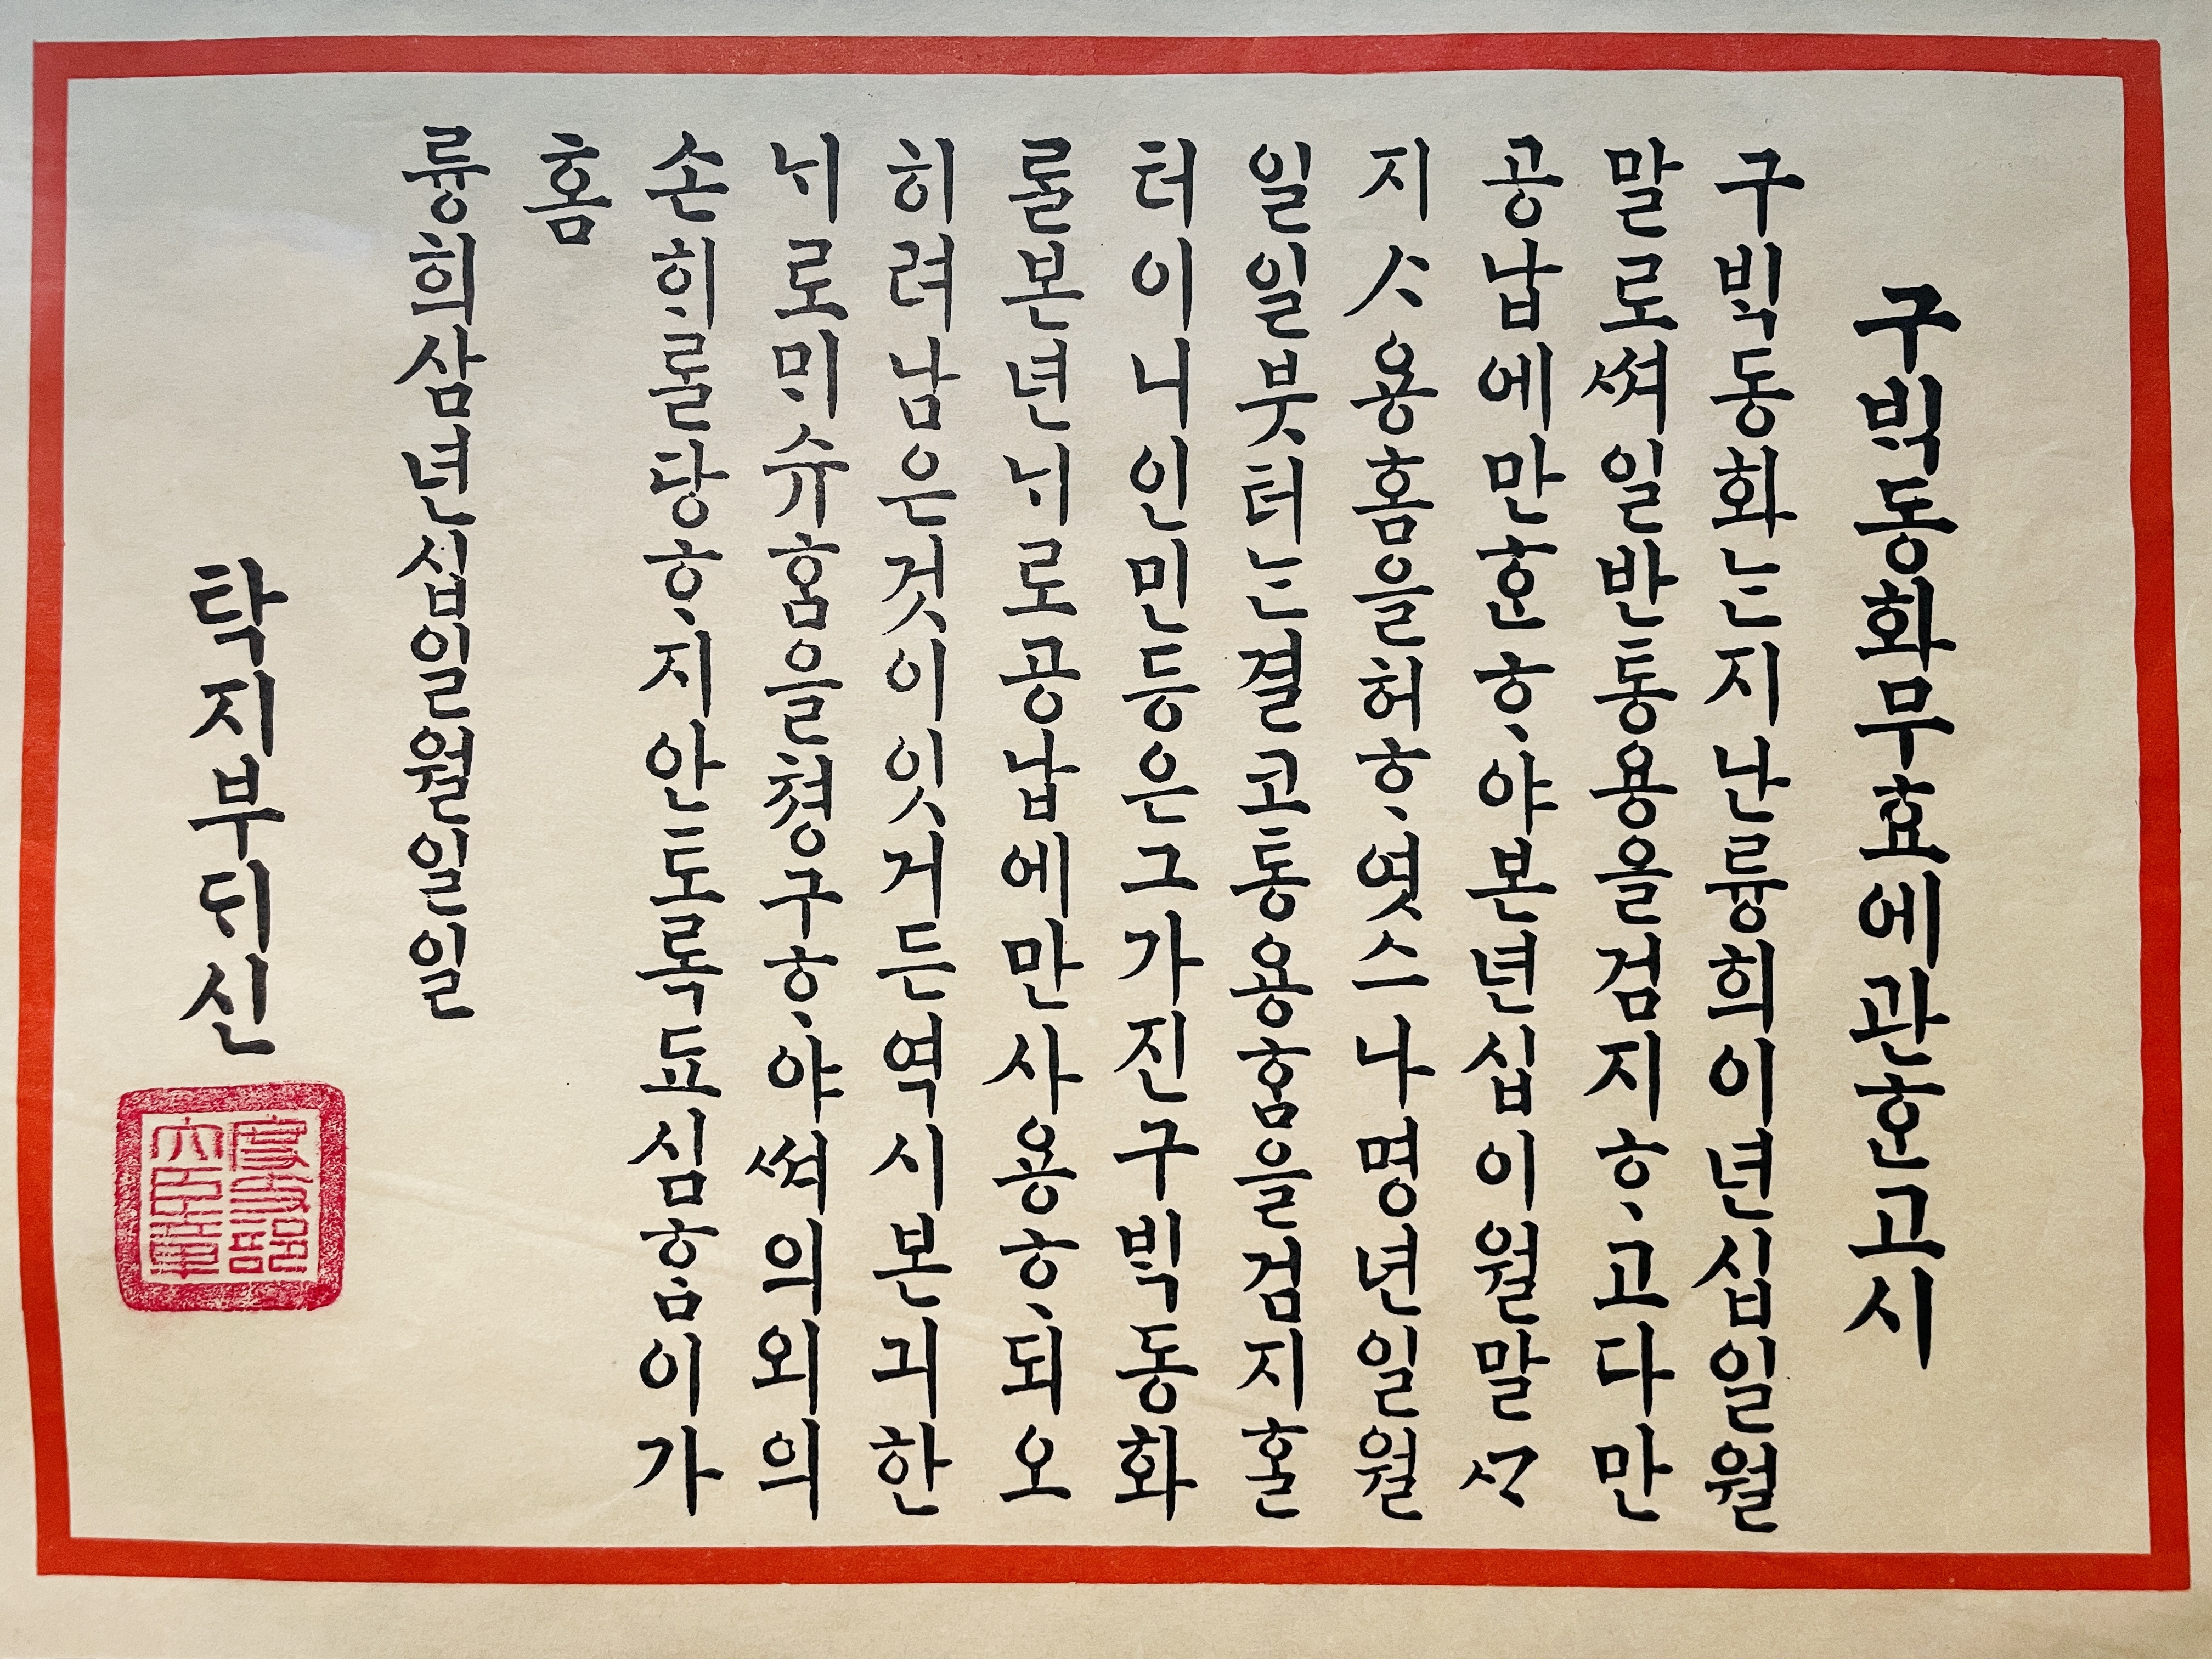 구ᄇᆡᆨ동화무효에관ᄒᆞᆫ고시
구ᄇᆡᆨ동화ᄂᆞᆫ지난륭희이년십일월
말로쎠일반통용을검지ᄒᆞ고다만
공납에만ᄒᆞᆫᄒᆞ야본년십이월말ᄭᆞ
지ᄉᆞ용ᄒᆞᆷ을허ᄒᆞ엿스나명년일월
일일붓터ᄂᆞᆫ결코통용ᄒᆞᆷ을검지ᄒᆞᆯ
터이니인민등은그가진구ᄇᆡᆨ동화
ᄅᆞᆯ본년ᄂᆡ로공납에만사용ᄒᆞ되오
히려남은것이잇거든역시본긔한
ᄂᆡ로ᄆᆡ슈ᄒᆞᆷ을쳥구ᄒᆞ야쎠의외의
손ᄒᆡᄅᆞᆯ당ᄒᆞ지안토록됴심ᄒᆞᆷ이가
ᄒᆞᆷ
륭희삼년십일월일일
탁지부ᄃᆡ신
度支部
大臣章